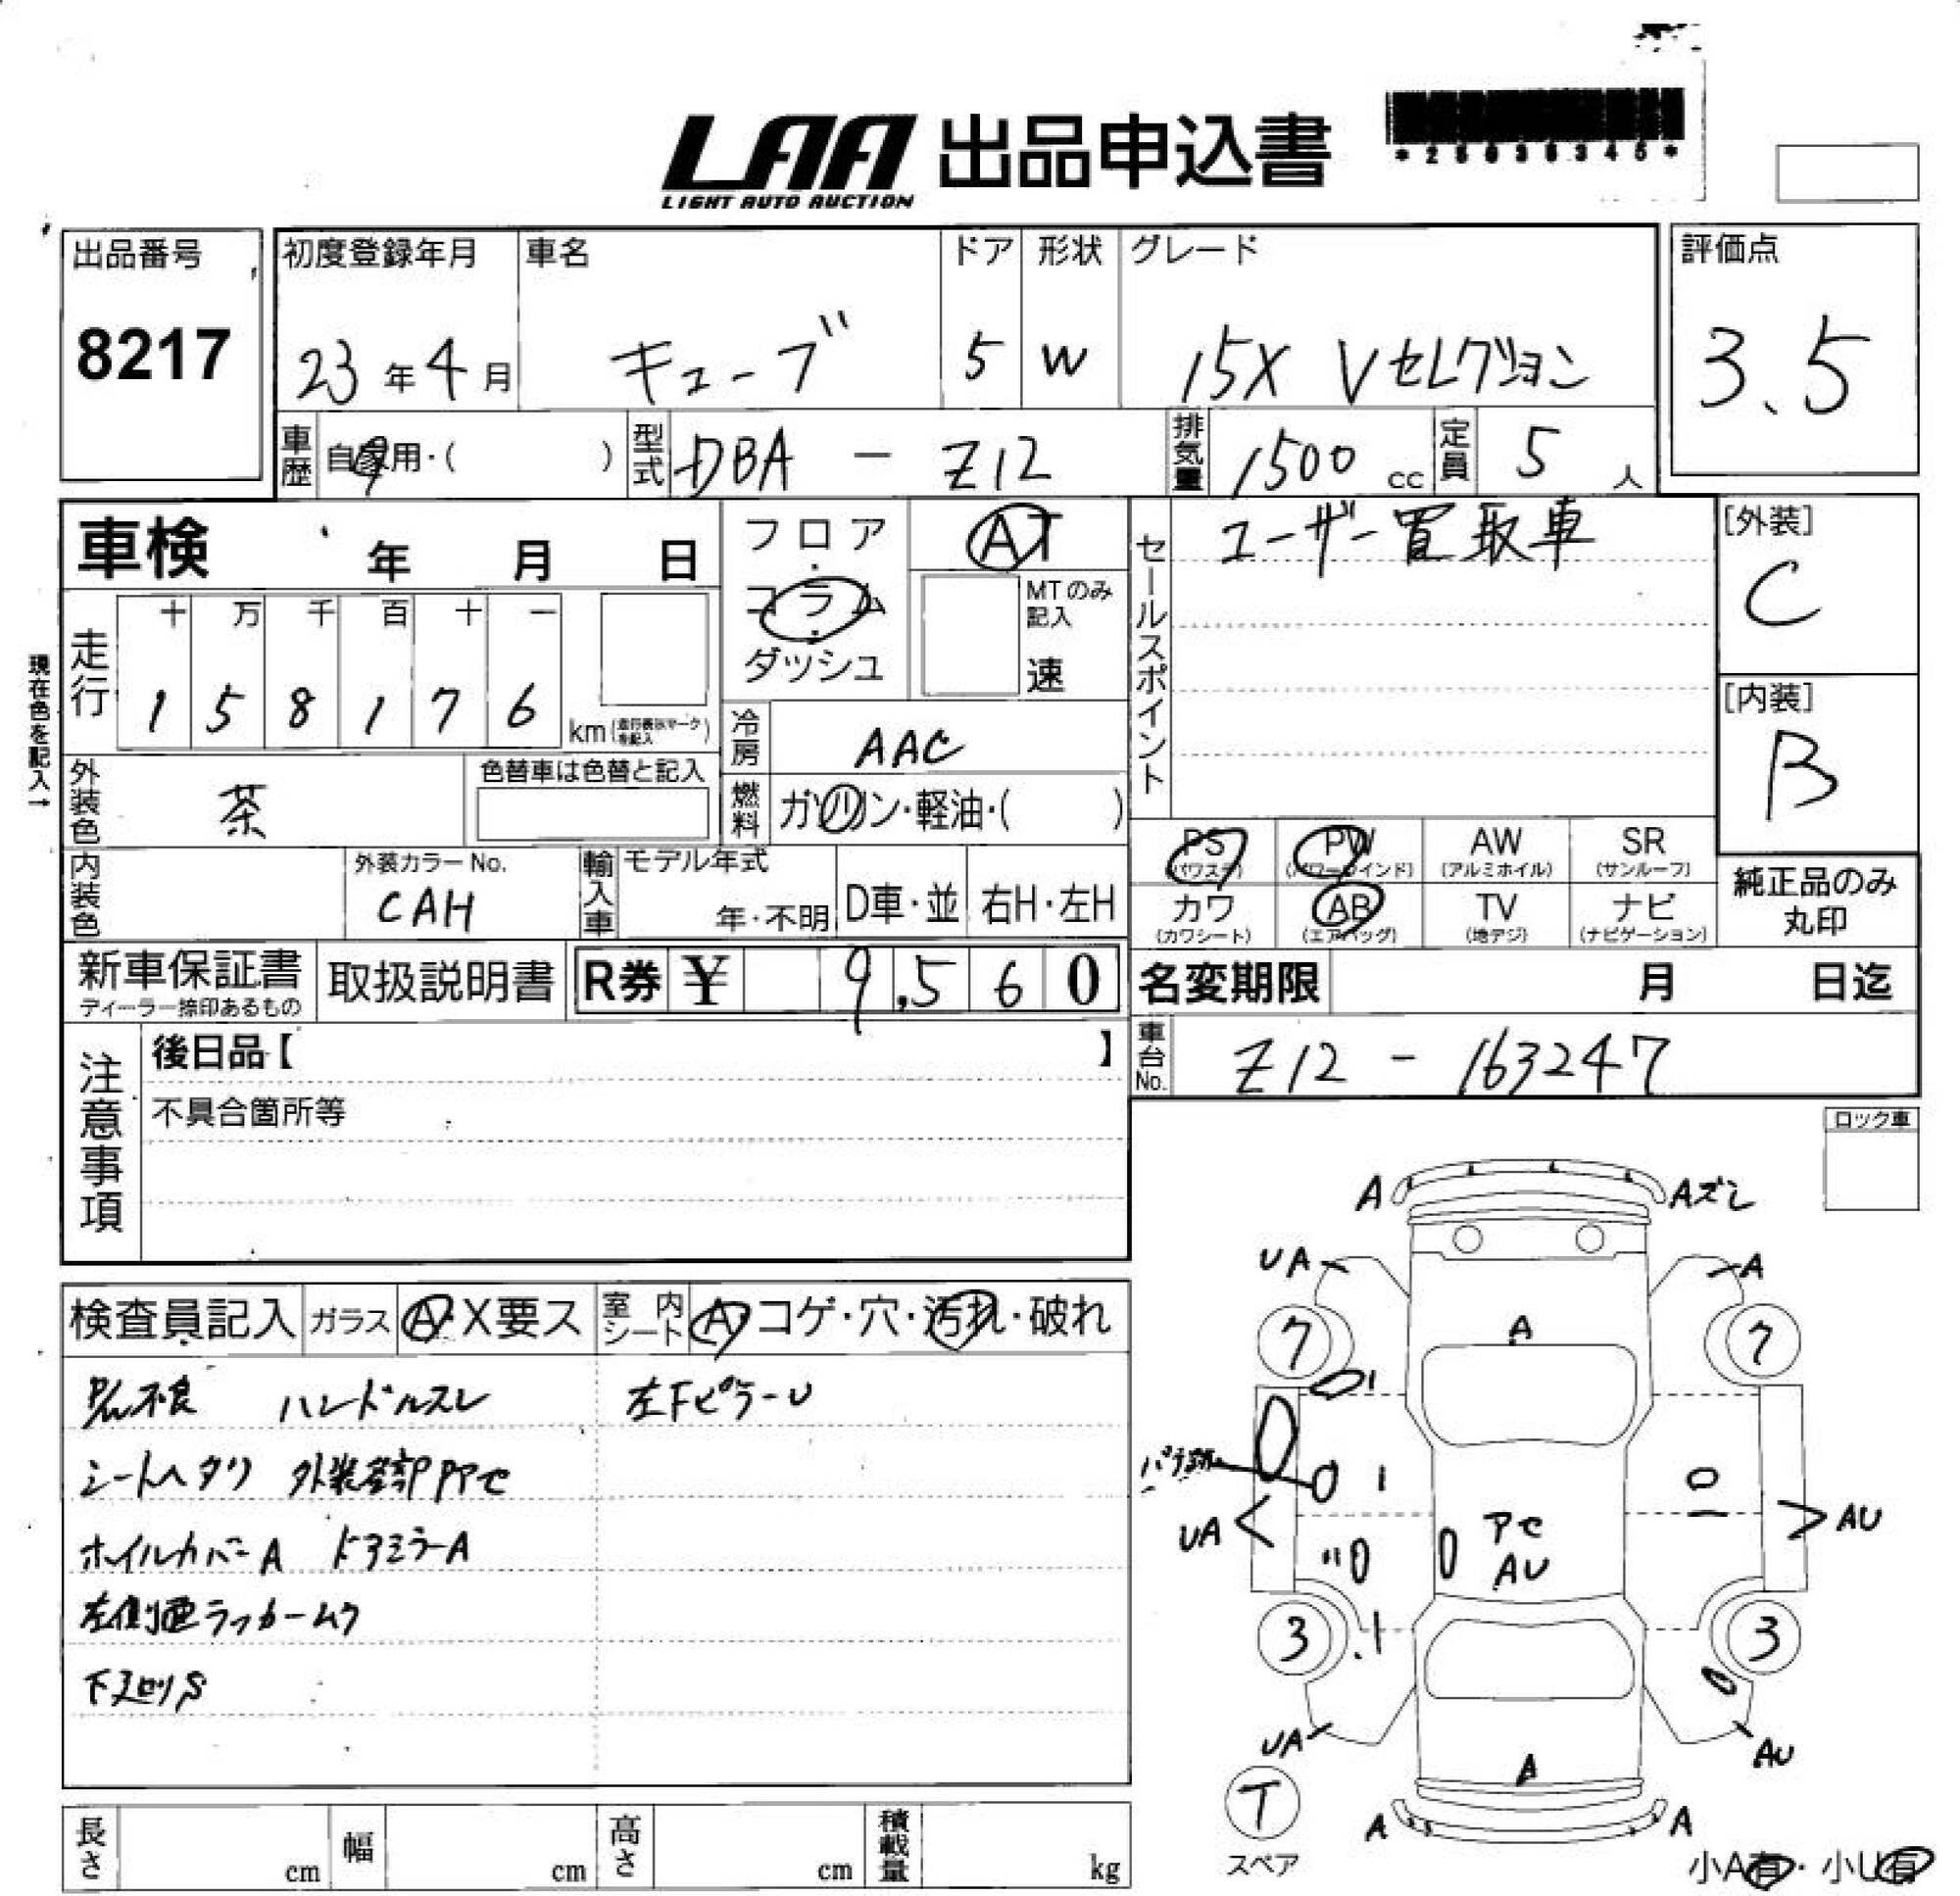 LAA 出品申込書
LIGHT AUTO AUCTION
出品番号
8217
初度登録年月
23年4月
車名
キューブ
ドア
5
形状
W
グレード
15X Vセレクション
評価点
3.5
車歴
自家用・( )
型式
DBA - Z12
排気量
1500 cc
定員
5 人
車検 年 月 日
フロア・コラム・ダッシュ
AT
MTのみ記入
速
現在色を記入→
走行
十 万 千 百 十 一
1 5 8 1 7 6
km(走行表示マークを記入)
冷房
AAC
燃料
ガソリン・軽油・( )
セールスポイント
ユーザー買取車
[外装]
C
[内装]
B
外装色
茶
色替車は色替と記入
内装色
外装カラーNo.
CAH
輸入車
モデル年式
年・不明
D車・並
右H・左H
PS
(パワステ)
PW
(パワーウインド)
AW
(アルミホイル)
SR
(サンルーフ)
カワ
(カワシート)
AB
(エアバッグ)
TV
(地デジ)
ナビ
(ナビゲーション)
純正品のみ
丸印
新車保証書
ディーラー捺印あるもの
取扱説明書
R券 ¥ 9,560
名変期限 月 日迄
車台No.
Z12 - 163247
注意事項
後日品【 】
不具合箇所等
ロック車
検査員記入
ガラス
A・X要ス
室内シート
A コゲ・穴・汚れ・破れ
ハンドルスレ
左下ピラーU
シートヘタリ
ホイルカバーA ドアミラーA
左側面ラッカームラ
下廻りS
A
Aズレ
UA
A
7
7
A
UA
AU
アセ
AU
3
3
UA
AU
A
T
スペア
A
A
小A有・小U有
長さ cm
幅 cm
高さ cm
積載量 kg